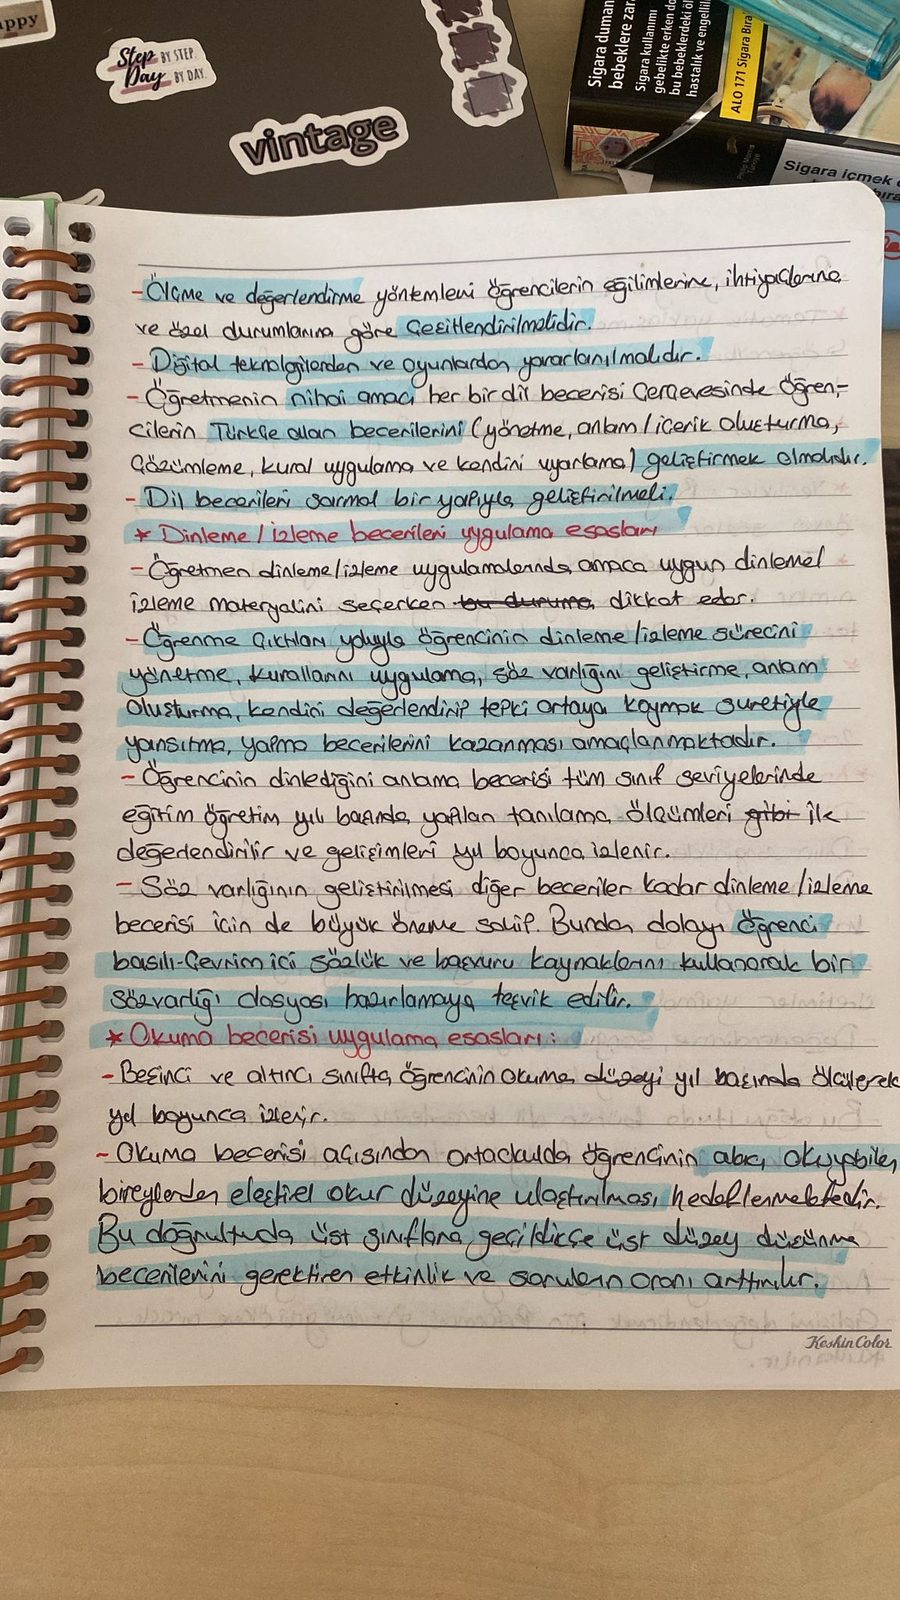 appy
Step BY STEP.
Day BY DAY.
vintage
Sigara duman
bebeklere zara
Sigara kullanımı
gebelikte erken do
bu bebeklerdeki öl
hastalık ve engelli
ALO 171 Sigara Bıra
Sigara içmek
bıra
- Ölçme ve değerlendirme yöntemleri öğrencilerin eğilimlerine, ihtiyaçlarına
ve özel durumlarına göre çeşitlendirilmelidir.
- Dijital teknolojilerden ve oyunlardan yararlanılmalıdır.
- Öğretmenin nihai amacı her bir dil becerisi çerçevesinde öğren-
cilerin Türkçe alan becerilerini (yönetme, anlam/içerik oluşturma,
çözümleme, kural uygulama ve kendini uyarlama) geliştirmek olmalıdır.
- Dil becerileri sarmal bir yapıyla geliştirilmeli.
* Dinleme/izleme becerileri uygulama esasları
- Öğretmen dinleme/izleme uygulamalarında amaca uygun dinleme/
izleme materyalini seçerken bu duruma dikkat eder.
- Öğrenme çıktıları yoluyla öğrencinin dinleme/izleme sürecini
yönetme, kurallarını uygulama, söz varlığını geliştirme, anlam
oluşturma, kendini değerlendirip tepki ortaya koymak suretiyle
yansıtma, yapma becerilerini kazanması amaçlanmaktadır.
- Öğrencinin dinlediğini anlama becerisi tüm sınıf seviyelerinde
eğitim öğretim yılı başında yapılan tanılama ölçümleri gibi ile
değerlendirilir ve gelişimleri yıl boyunca izlenir.
- Söz varlığının geliştirilmesi diğer beceriler kadar dinleme/izleme
becerisi için de büyük öneme sahip. Bundan dolayı öğrenci
basılı-çevrim içi sözlük ve başvuru kaynaklarını kullanarak bir
söz varlığı dosyası hazırlamaya teşvik edilir.
* Okuma becerisi uygulama esasları:
- Beşinci ve altıncı sınıfta öğrencinin okuma düzeyi yıl başında ölçülerek
yıl boyunca izlenir.
- Okuma becerisi açısından ortaokulda öğrencinin akıcı okuyabilen
bireylerden eleştirel okur düzeyine ulaştırılması hedeflenmektedir.
Bu doğrultuda üst sınıflara geçildikçe üst düzey düşünme
becerilerini gerektiren etkinlik ve soruların oranı arttırılır.
KeskinColor